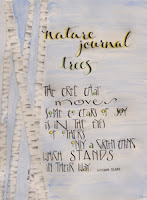 nature
journal
trees
THE TREE THAT
moves
SOME TO TEARS OF JOY
IS IN THE EYES
OF OTHERS
ONLY A GREEN THING
WHICH STANDS
IN THEIR WAY.
WILLIAM BLAKE